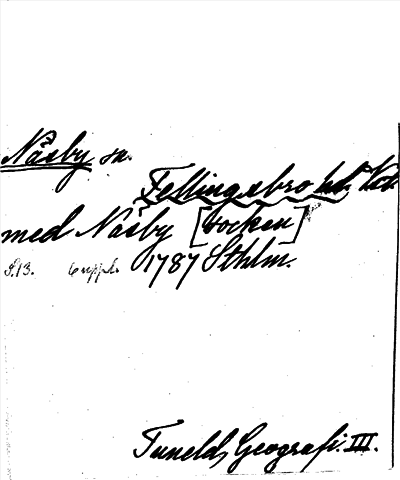 Näsby sn.
Fellingsbro hd. Väst.
med Näsby [socken]
S.13. 6 uppl. 1787 Sthlm.
Tunelds Geografi. III.